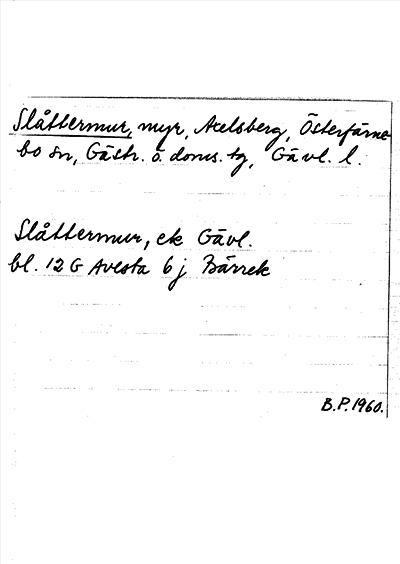 Slåttermur, myr, Axelsberg, Österfärne-
bo sn, Gästr. ö. doms. tg, Gävl. l.
Slåttermur, ek Gävl.
bl. 12 G Avesta 6 j Bärrek
B.P. 1960.